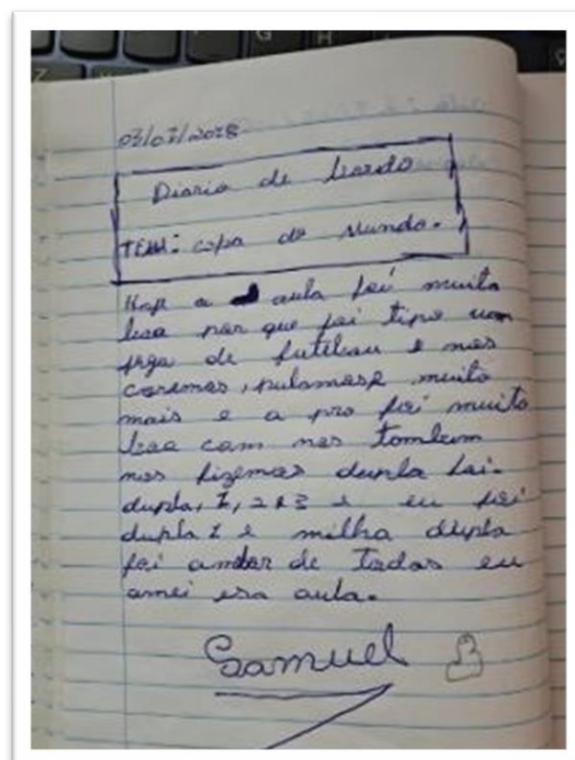 03/07/2018
Diario de bordo
TEMA: copa do Mundo.
Hoje a aula foi muito
boa por que foi tipo um
joga de futibau e nos
coremos, pulamose muito
mais e a pro foi muito
boa com nos tombem
nos fizemos dupla foi
dupla, 1, 2 e 3 e eu foi
dupla 1 e milha dupla
foi de Todas eu
amei esa aula.
Samuel